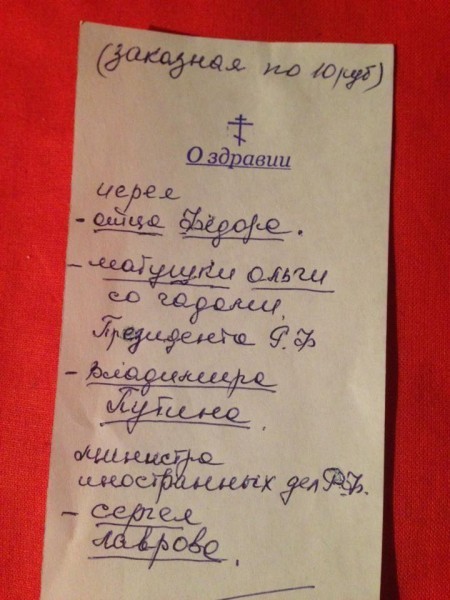 (заказная по 10 руб)
О здравии
иерея
- отца Фёдора.
- матушки ольги
со чадами,
Президента Р.Ф
- Владимира
Путина.
министра
иностранных дел Р.Ф.
- сергея
лаврова.